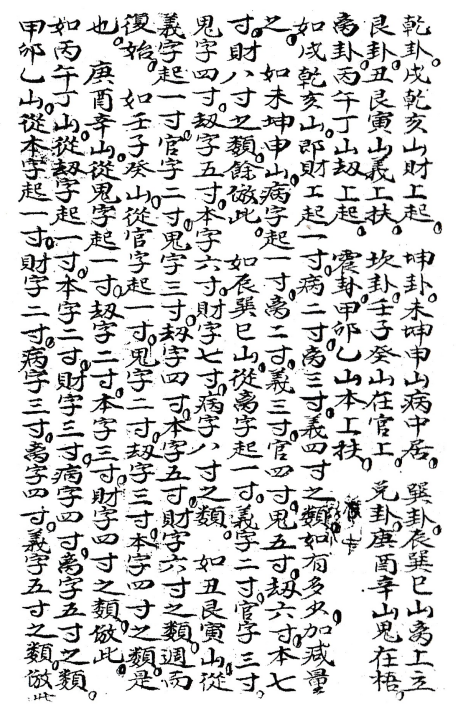 乾卦。戌乾亥山財上起。　坤卦。未坤申山病中居。　巽卦。辰巽巳山离上立
艮卦。丑艮寅山義上扶。　坎卦。壬子癸山在官上。　兌卦。庚酉辛山鬼在梧。
离卦。丙午丁山刼上起。　震卦。甲卯乙山本上扶。
如戌乾亥山。即財上起一寸。病二寸。离三寸。義四寸之類。如有多少。加减量
之。　如未坤申山。病字起一寸。离二寸。義三寸。官四寸。鬼五寸。刼六寸。本七
寸。財八寸之類。餘倣此。　如辰巽巳山。從离字起一寸。義字二寸。官字三寸。
鬼字四寸。刼字五寸。本字六寸。財字七寸。病字八寸之類。　如丑艮寅山。從
義字起一寸。官字二寸。鬼字三寸。刼字四寸。本字五寸。財字六寸之類。週而
復始。　如壬子癸山。從官字起一寸。鬼字二寸。刼字三寸。本字四寸之類是
也。　庚酉辛山。從鬼字起一寸。刼字二寸。本字三寸。財字四寸之類。倣此。
如丙午丁山。從刼字起一寸。本字二寸。財字三寸。病字四寸。离字五寸之類。
甲卯乙山。從本字起一寸。財字二寸。病字三寸。离字四寸。義字五寸之類。倣此